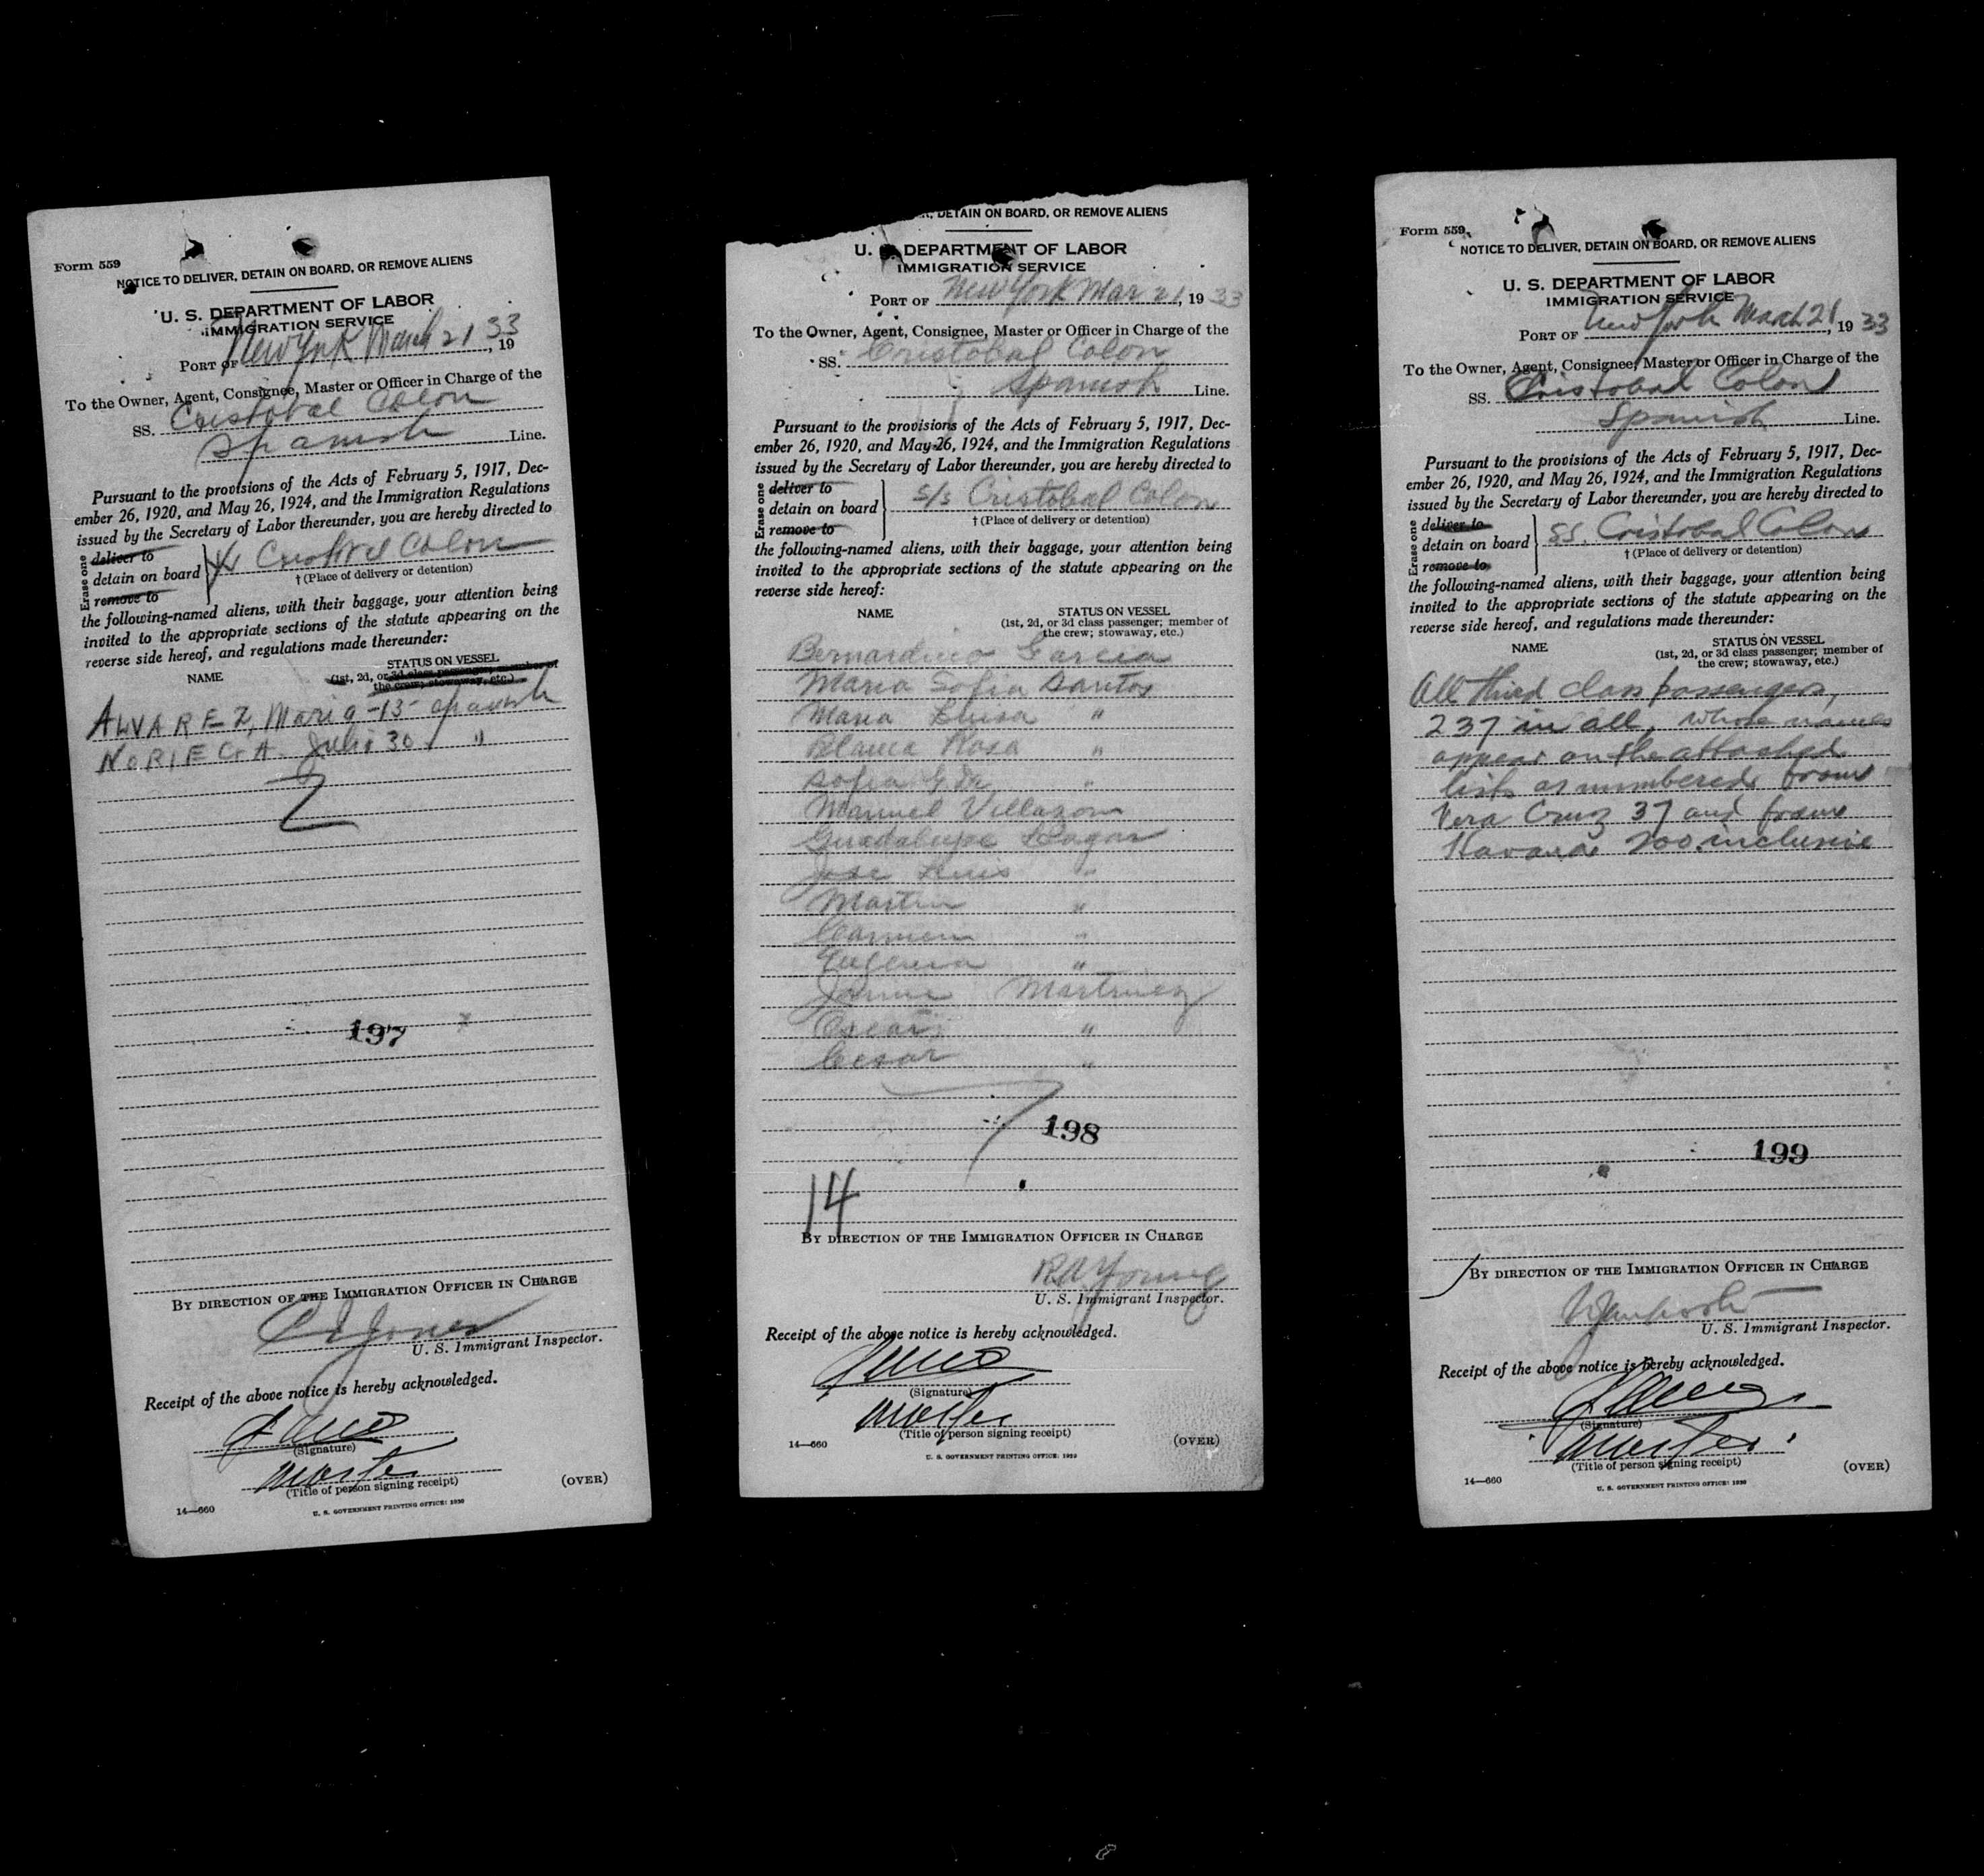 Form 559
NOTICE TO DELIVER, DETAIN ON BOARD, OR REMOVE ALIENS
U. S. DEPARTMENT OF LABOR
IMMIGRATION SERVICE
PORT OF New York March 21, 1933
To the Owner, Agent, Consignee, Master or Officer in Charge of the
SS. Cristobal Colon
Spanish Line.
Pursuant to the provisions of the Acts of February 5, 1917, Dec-
ember 26, 1920, and May 26, 1924, and the Immigration Regulations
issued by the Secretary of Labor thereunder, you are hereby directed to
Erase one
deliver to
detain on board
remove to
Cristobal Colon
† (Place of delivery or detention)
the following-named aliens, with their baggage, your attention being
invited to the appropriate sections of the statute appearing on the
reverse side hereof, and regulations made thereunder:
NAME STATUS ON VESSEL
(1st, 2d, or 3d class passenger; member of
the crew; stowaway, etc.)
ALVAREZ, Maria -13- Spanish
NORIEGA Julio 30 "
2
197
BY DIRECTION OF THE IMMIGRATION OFFICER IN CHARGE
Jones
U. S. Immigrant Inspector.
Receipt of the above notice is hereby acknowledged.
(Signature)
Master
(Title of person signing receipt)
14—660 (OVER)
U. S. GOVERNMENT PRINTING OFFICE: 1930
DETAIN ON BOARD, OR REMOVE ALIENS
U. S. DEPARTMENT OF LABOR
IMMIGRATION SERVICE
PORT OF New York Mar 21, 1933
To the Owner, Agent, Consignee, Master or Officer in Charge of the
SS. Cristobal Colon
Spanish Line.
Pursuant to the provisions of the Acts of February 5, 1917, Dec-
ember 26, 1920, and May 26, 1924, and the Immigration Regulations
issued by the Secretary of Labor thereunder, you are hereby directed to
Erase one
deliver to
detain on board
remove to
s/s Cristobal Colon
† (Place of delivery or detention)
the following-named aliens, with their baggage, your attention being
invited to the appropriate sections of the statute appearing on the
reverse side hereof:
NAME STATUS ON VESSEL
(1st, 2d, or 3d class passenger; member of
the crew; stowaway, etc.)
Bernardino Garcia
Maria Sofia Santos
Maria Luisa "
Blanca Rosa "
Sofia G de "
Manuel Villazon
Guadalupe
Jose Luis "
Martin "
Carmen "
Eugenia "
Jaime Martinez
Oscar "
Cesar "
198
14
BY DIRECTION OF THE IMMIGRATION OFFICER IN CHARGE
R A Young
U. S. Immigrant Inspector.
Receipt of the above notice is hereby acknowledged.
(Signature)
Master
(Title of person signing receipt)
14—660 (OVER)
U. S. GOVERNMENT PRINTING OFFICE: 1929
Form 559
NOTICE TO DELIVER, DETAIN ON BOARD, OR REMOVE ALIENS
U. S. DEPARTMENT OF LABOR
IMMIGRATION SERVICE
PORT OF New York March 21, 1933
To the Owner, Agent, Consignee, Master or Officer in Charge of the
SS. Cristobal Colon
Spanish Line.
Pursuant to the provisions of the Acts of February 5, 1917, Dec-
ember 26, 1920, and May 26, 1924, and the Immigration Regulations
issued by the Secretary of Labor thereunder, you are hereby directed to
Erase one
deliver to
detain on board
remove to
SS. Cristobal Colon
† (Place of delivery or detention)
the following-named aliens, with their baggage, your attention being
invited to the appropriate sections of the statute appearing on the
reverse side hereof, and regulations made thereunder:
NAME STATUS ON VESSEL
(1st, 2d, or 3d class passenger; member of
the crew; stowaway, etc.)
All third class passengers,
237 in all, whose names
appear on the attached
lists as numbered from
Vera Cruz 37 and from
Havana 200 inclusive
199
BY DIRECTION OF THE IMMIGRATION OFFICER IN CHARGE
U. S. Immigrant Inspector.
Receipt of the above notice is hereby acknowledged.
(Signature)
Master
(Title of person signing receipt)
14—660 (OVER)
U. S. GOVERNMENT PRINTING OFFICE: 1930